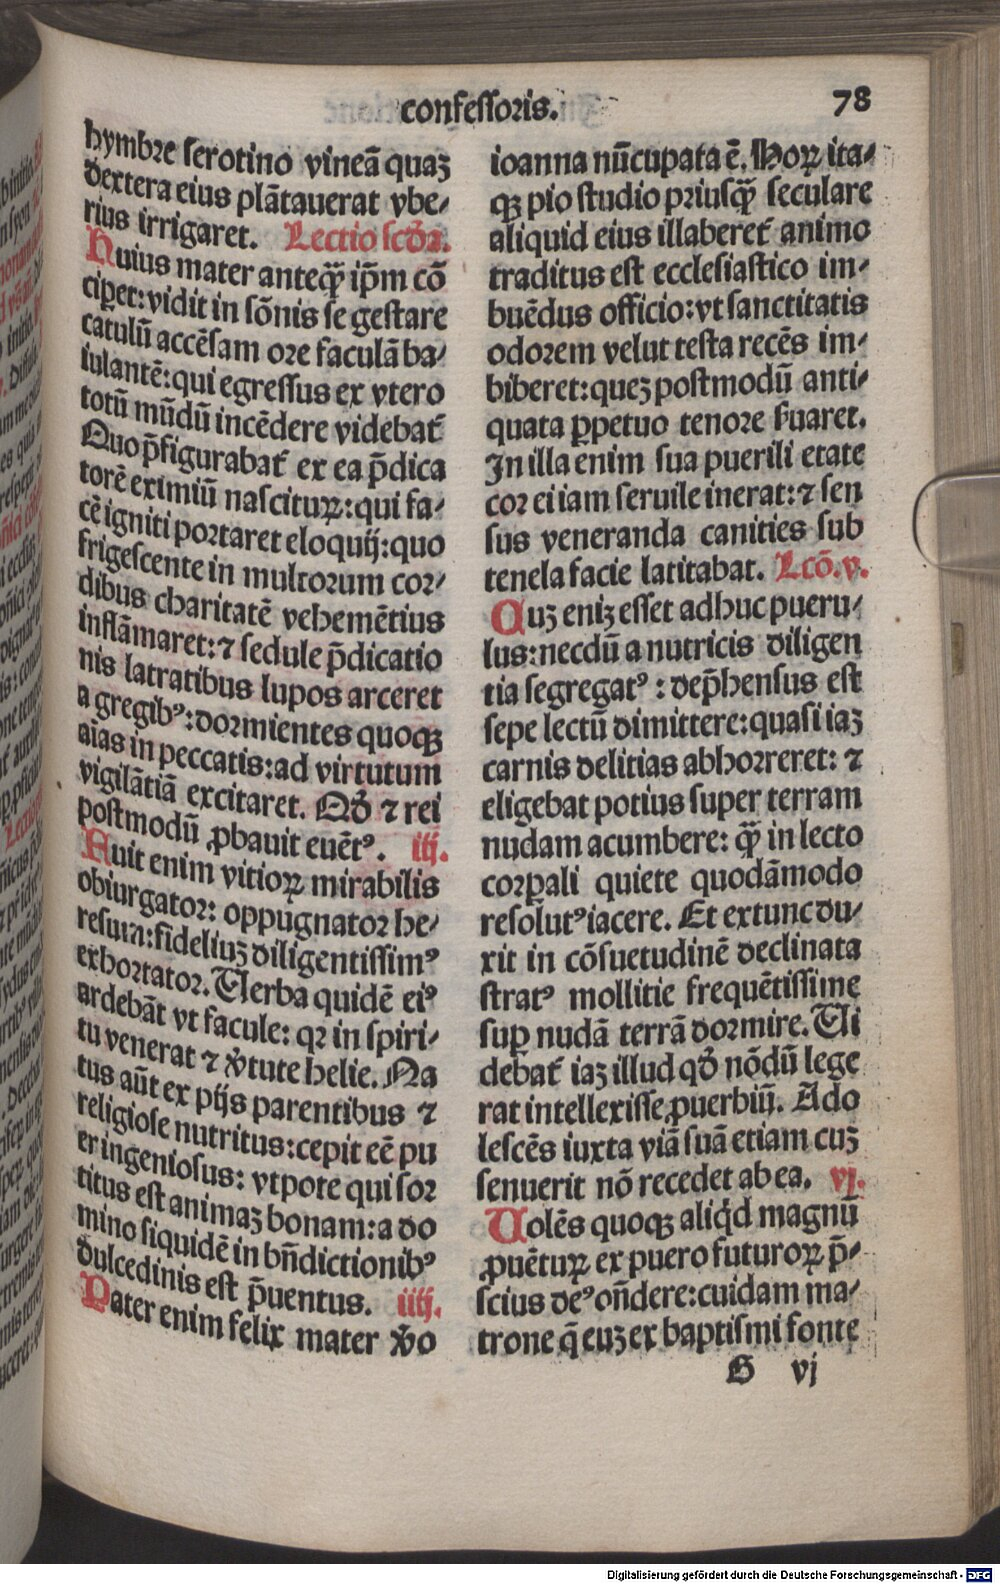 confessoris.
78
hymbre serotino vineā quaꝫ
dextera eius plātauerat vbe⸗
rius irrigaret. Lectio scd̄a.
Huius mater anteqꝫ̄ ip̄m cō
cip̄et: vidit in sōnis se gestare
catulū accēsam ore faculā ba⸗
iulantē: qui egressus ex vtero
totū mūdū incēdere videbat᷑
Quo p̄figurabat᷑ ex ea p̄dica
torē eximiū nasciturꝝ: qui fa⸗
cē igniti portaret eloquij: quo
frigescente in multorum cor⸗
dibus charitatē vehemētius
inflāmaret: ⁊ sedule p̄dicatio
nis latratibus lupos arceret
a gregibꝰ: dormientes quoqꝫ
aīas in peccatis: ad virtutum
vigilātiā excitaret. Qd̄ ⁊ rei
postmodū ꝓbauit euētꝰ. iij.
Fuit enim vitioꝝ mirabilis
obiurgator: oppugnator he⸗
resum: fideliuꝫ diligentissimꝰ
exhortator. Verba quidē eiꝰ
ardebāt vt facule: qꝛ in spiri⸗
tu venerat ⁊ v̄tute helie. Na
tus aūt ex pijs parentibus ⁊
religiose nutritus: cepit eē pu
er ingeniosus: vtpote qui sor
titus est animaꝫ bonam: a do
mino siquidē in bn̄dictionibꝰ
dulcedinis est p̄uentus. iiij.
Pater enim felix mater v̄o
ioanna nūcupata ē. Hoꝝ ita⸗
qꝫ pio studio priusqꝫ̄ seculare
aliquid eius illaberet᷑ animo
traditus est ecclesiastico im⸗
buēdus officio: vt sanctitatis
odorem velut testa recēs im⸗
biberet: queꝫ postmodū anti⸗
quata ꝑpetuo tenore ẜuaret.
In illa enim sua puerili etate
cor ei iam senile inerat: ⁊ sen
sus veneranda canities sub
tenela facie latitabat. Lcō. v.
Cuꝫ eniꝫ esset adhuc pueru⸗
lus: necdū a nutricis diligen
tia segregatꝰ: dep̄hensus est
sepe lectū dimittere: quasi iaꝫ
carnis delitias abhorreret: ⁊
eligebat potius super terram
nudam acumbere: qꝫ̄ in lecto
corꝑali quiete quodāmodo
resolutꝰ iacere. Et extunc du⸗
xit in cōsuetudinē declinata
stratꝰ mollitie frequētissime
suꝑ nudā terrā dormire. Vi
debat᷑ iaꝫ illud qd̄ nōdū lege
rat intellexisse ꝓuerbiū. Ado
lescēs iuxta viā suā etiam cuꝫ
senuerit nō recedet ab ea. vj.
Volēs quoqꝫ aliq̇d magnū
ꝓuēturꝝ ex puero futuroꝝ p̄⸗
scius deꝰ on̄dere: cuidam ma⸗
trone q̄ euꝫ ex baptismi fonte
G vj
Digitalisierung gefördert durch die Deutsche Forschungsgemeinschaft - DFG